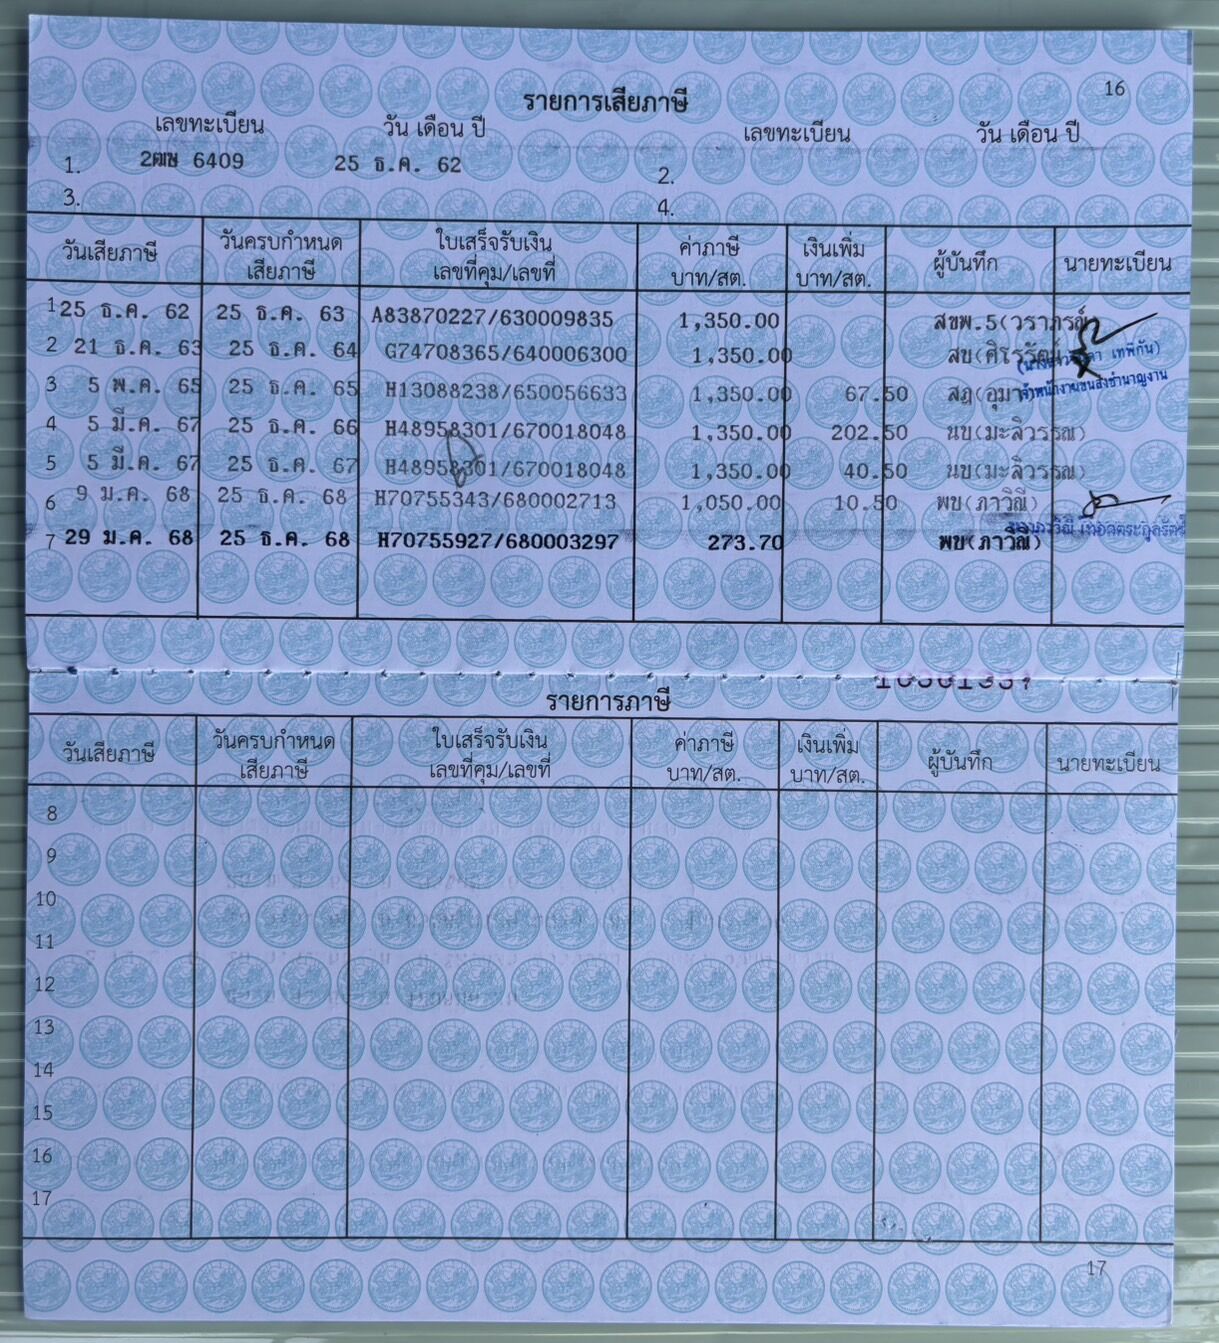 16
รายการเสียภาษี
เลขทะเบียน วัน เดือน ปี เลขทะเบียน วัน เดือน ปี
1. 2ฒษ 6409 25 ธ.ค. 62 2.
3. 4.
วันเสียภาษี วันครบกำหนดเสียภาษี ใบเสร็จรับเงิน เลขที่คุม/เลขที่ ค่าภาษี บาท/สต. เงินเพิ่ม บาท/สต. ผู้บันทึก นายทะเบียน
1 25 ธ.ค. 62 25 ธ.ค. 63 A83870227/630009835 1,350.00 สขพ.5(วราภรณ์)
2 21 ธ.ค. 63 25 ธ.ค. 64 G74708365/640006300 1,350.00 สข(ศิโรรัตน์
เทพิกัน)
3 5 พ.ค. 65 25 ธ.ค. 65 H13088238/650056633 1,350.00 67.50 สฎ(อุมา
เจ้าพนักงานขนส่งชำนาญงาน
4 5 มี.ค. 67 25 ธ.ค. 66 H48958301/670018048 1,350.00 202.50 นข(มะลิวรรณ)
5 5 มี.ค. 67 25 ธ.ค. 67 H48958301/670018048 1,350.00 40.50 นข(มะลิวรรณ)
6 9 ม.ค. 68 25 ธ.ค. 68 H70755343/680002713 1,050.00 10.50 พข(ภาวิณี)
7 29 ม.ค. 68 25 ธ.ค. 68 H70755927/680003297 273.70 พข(ภาวิณี)
รายการภาษี
วันเสียภาษี วันครบกำหนดเสียภาษี ใบเสร็จรับเงิน เลขที่คุม/เลขที่ ค่าภาษี บาท/สต. เงินเพิ่ม บาท/สต. ผู้บันทึก นายทะเบียน
8
9
10
11
12
13
14
15
16
17
17